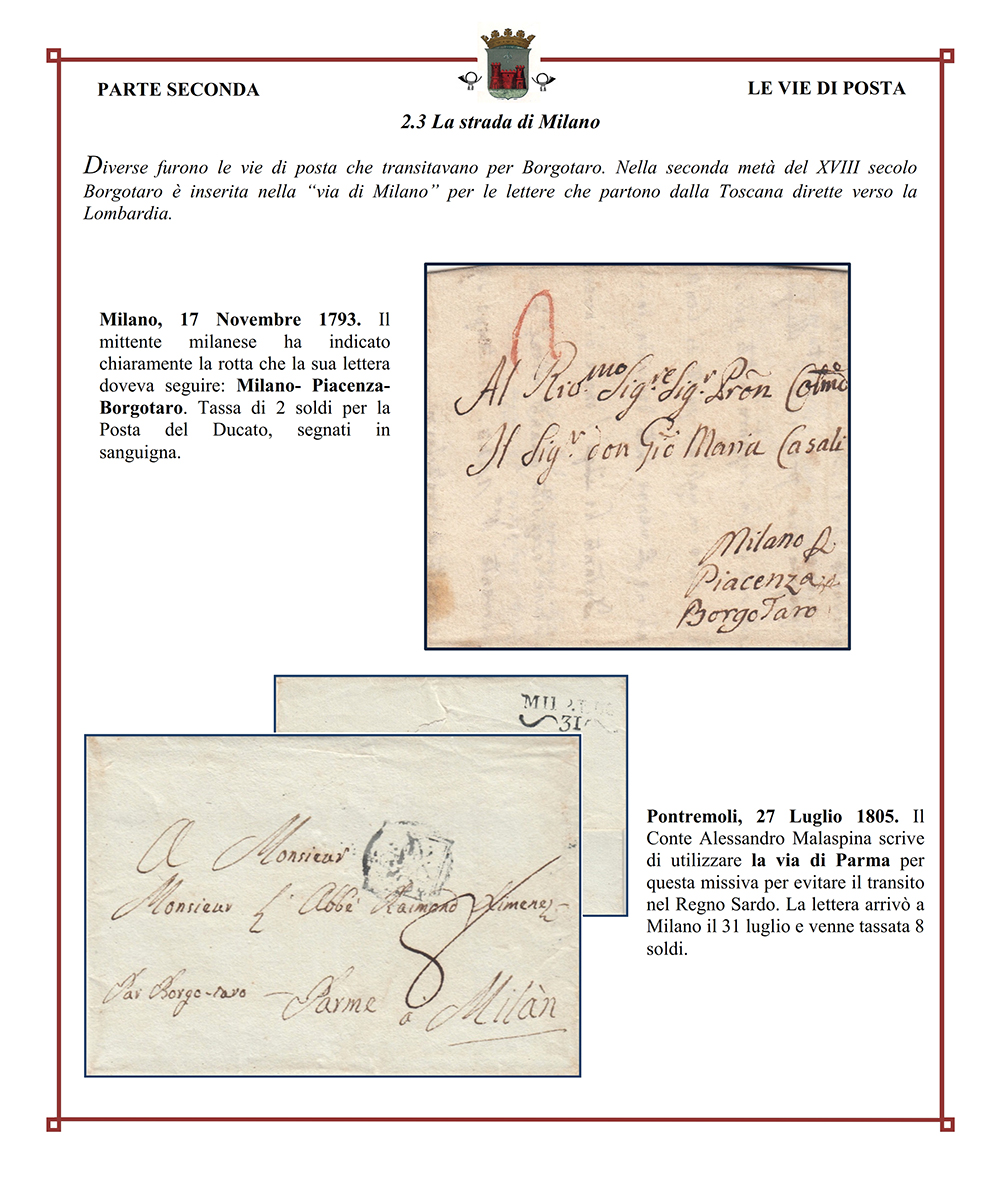 PARTE SECONDA
LE VIE DI POSTA
2.3 La strada di Milano
Diverse furono le vie di posta che transitavano per Borgotaro. Nella seconda metà del XVIII secolo
Borgotaro è inserita nella “via di Milano” per le lettere che partono dalla Toscana dirette verso la
Lombardia.
Milano, 17 Novembre 1793. Il
mittente milanese ha indicato
chiaramente la rotta che la sua lettera
doveva seguire: Milano- Piacenza-
Borgotaro. Tassa di 2 soldi per la
Posta del Ducato, segnati in
sanguigna.
Al Rio.mo Sig.re Sig.r Prõn Colmo
Il Sig.r don Gio Maria Casali
Milano
Piacenza
BorgoTaro
31
A Monsieur
Monsieur L'Abbé Raimond Ximenez
8
Par Borgo-taro - Parme à Milàn
Pontremoli, 27 Luglio 1805. Il
Conte Alessandro Malaspina scrive
di utilizzare la via di Parma per
questa missiva per evitare il transito
nel Regno Sardo. La lettera arrivò a
Milano il 31 luglio e venne tassata 8
soldi.